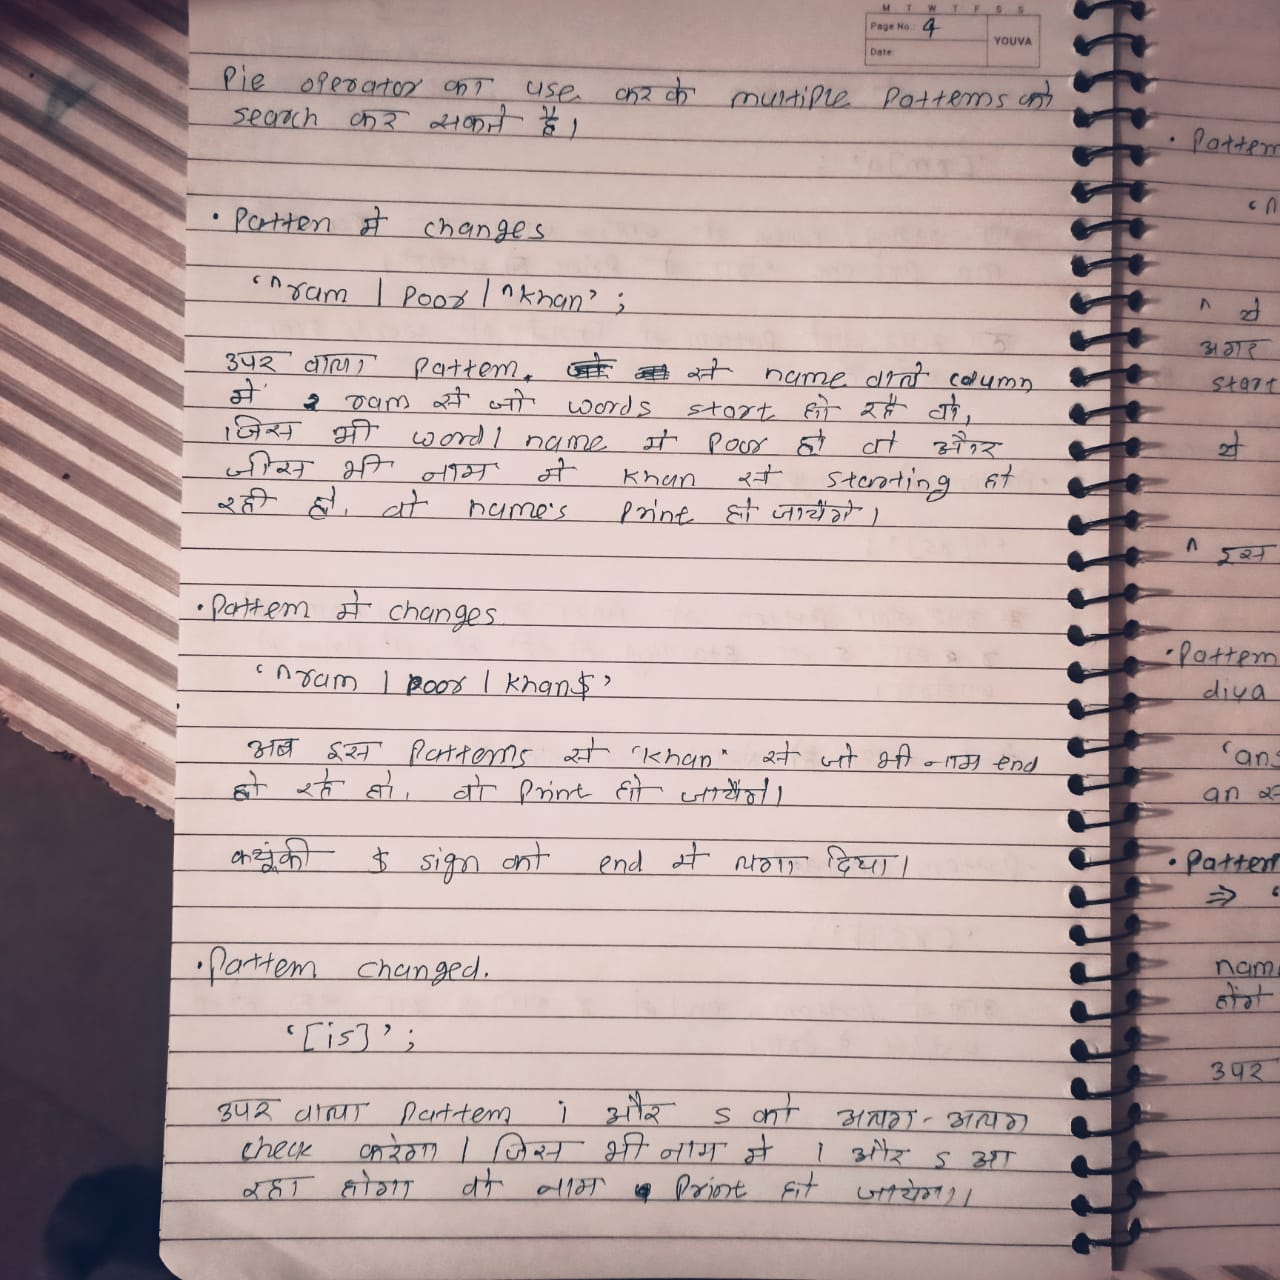 M T W T F S S
Page No.: 4
YOUVA
Date:
Pie operator का use करके multiple Patterns को
search कर सकते है।
• Patten में changes
‘^ram | Poor | ^khan’ ;
उपर वाला Pattern. से name वाले column
में ram से जो words start हो रहे वो,
जिस भी word/name में Poor हो वो और
जीस भी नाम में khan से starting हो
रही हो, वो name's Print हो जायेंगे।
• Pattern में changes
‘^ram | poor | khan$’
अब इस Patterns से "khan" से जो भी नाम end
हो रहे हो, वो Print हो जायेंगे।
क्यूंकी $ sign को end में लगा दिया।
• Pattern changed.
‘[is]’ ;
उपर वाला Pattern i और s को अलग-अलग
check करेगा। जिस भी नाम में i और s आ
रहा होगा वो नाम Print हो जायेगा।
• Pattern
^ से
अगर
start
से
^ इस
• Pattern
diya
‘an
• Patter
⇒
nam
होंगे
उपर